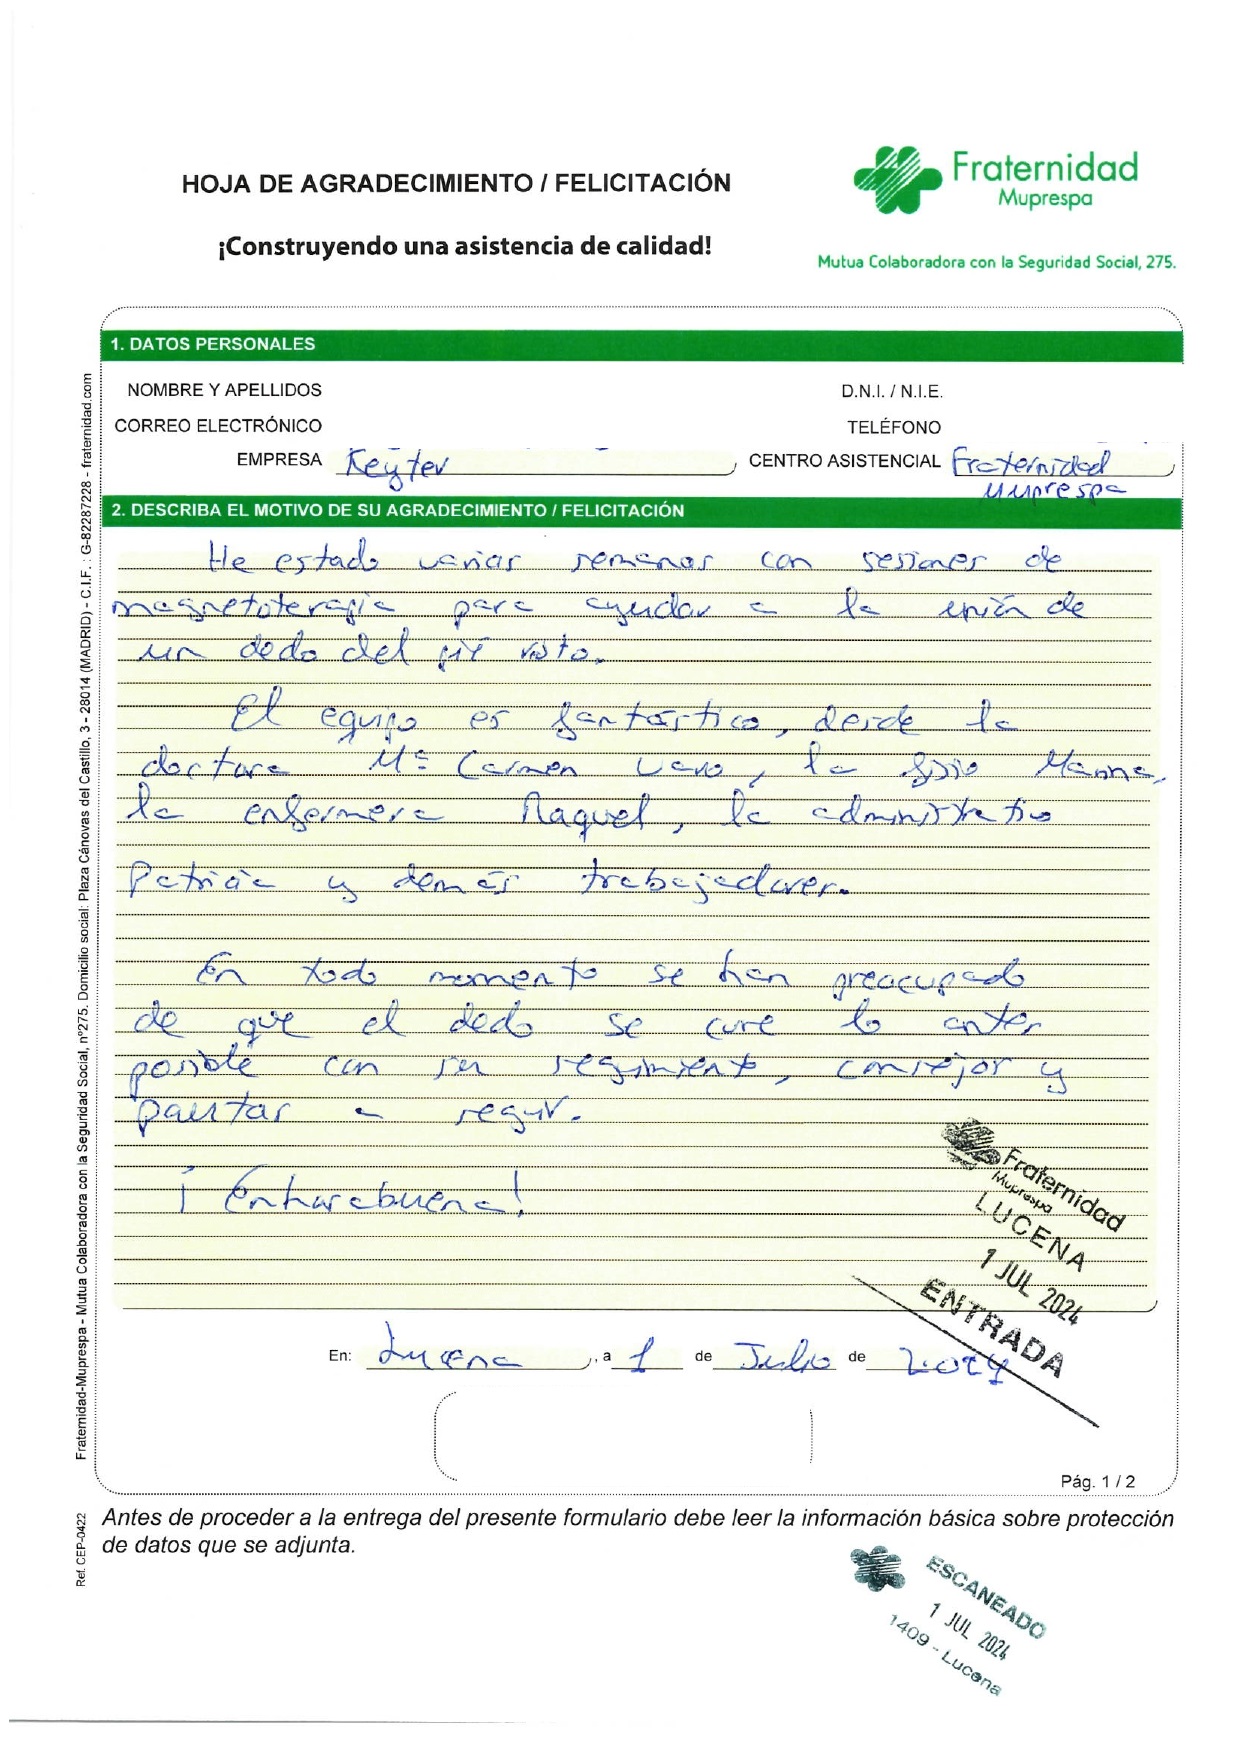 HOJA DE AGRADECIMIENTO / FELICITACIÓN
¡Construyendo una asistencia de calidad!
Fraternidad
Muprespa
Mutua Colaboradora con la Seguridad Social, 275.
1. DATOS PERSONALES
NOMBRE Y APELLIDOS
D.N.I. / N.I.E.
CORREO ELECTRÓNICO
TELÉFONO
EMPRESA Keyter, CENTRO ASISTENCIAL Fraternidad
Muprespa
2. DESCRIBA EL MOTIVO DE SU AGRADECIMIENTO / FELICITACIÓN
He estado varias semanas con sesiones de
magnetoterapia para ayudar a la unión de
un dedo del pie roto.
El equipo es fantástico, desde la
doctora Mª Carmen, la fisio
la enfermera Raquel, la administrativo
Patricia y demás trabajadores.
En todo momento se han preocupado
de que el dedo se cure lo antes
posible con su seguimiento, consejos y
pautas a seguir.
¡Enhorabuena!
Fraternidad
Muprespa
LUCENA
1 JUL 2024
ENTRADA
En: Lucena, a 1 de Julio de 2024
Pág. 1 / 2
Antes de proceder a la entrega del presente formulario debe leer la información básica sobre protección
de datos que se adjunta.
ESCANEADO
1 JUL 2024
1409 - Lucena
Fraternidad-Muprespa - Mutua Colaboradora con la Seguridad Social, nº275. Domicilio social: Plaza Cánovas del Castillo, 3 - 28014 (MADRID) - C.I.F. : G-82287228 - fraternidad.com
Ref. CEP-0422